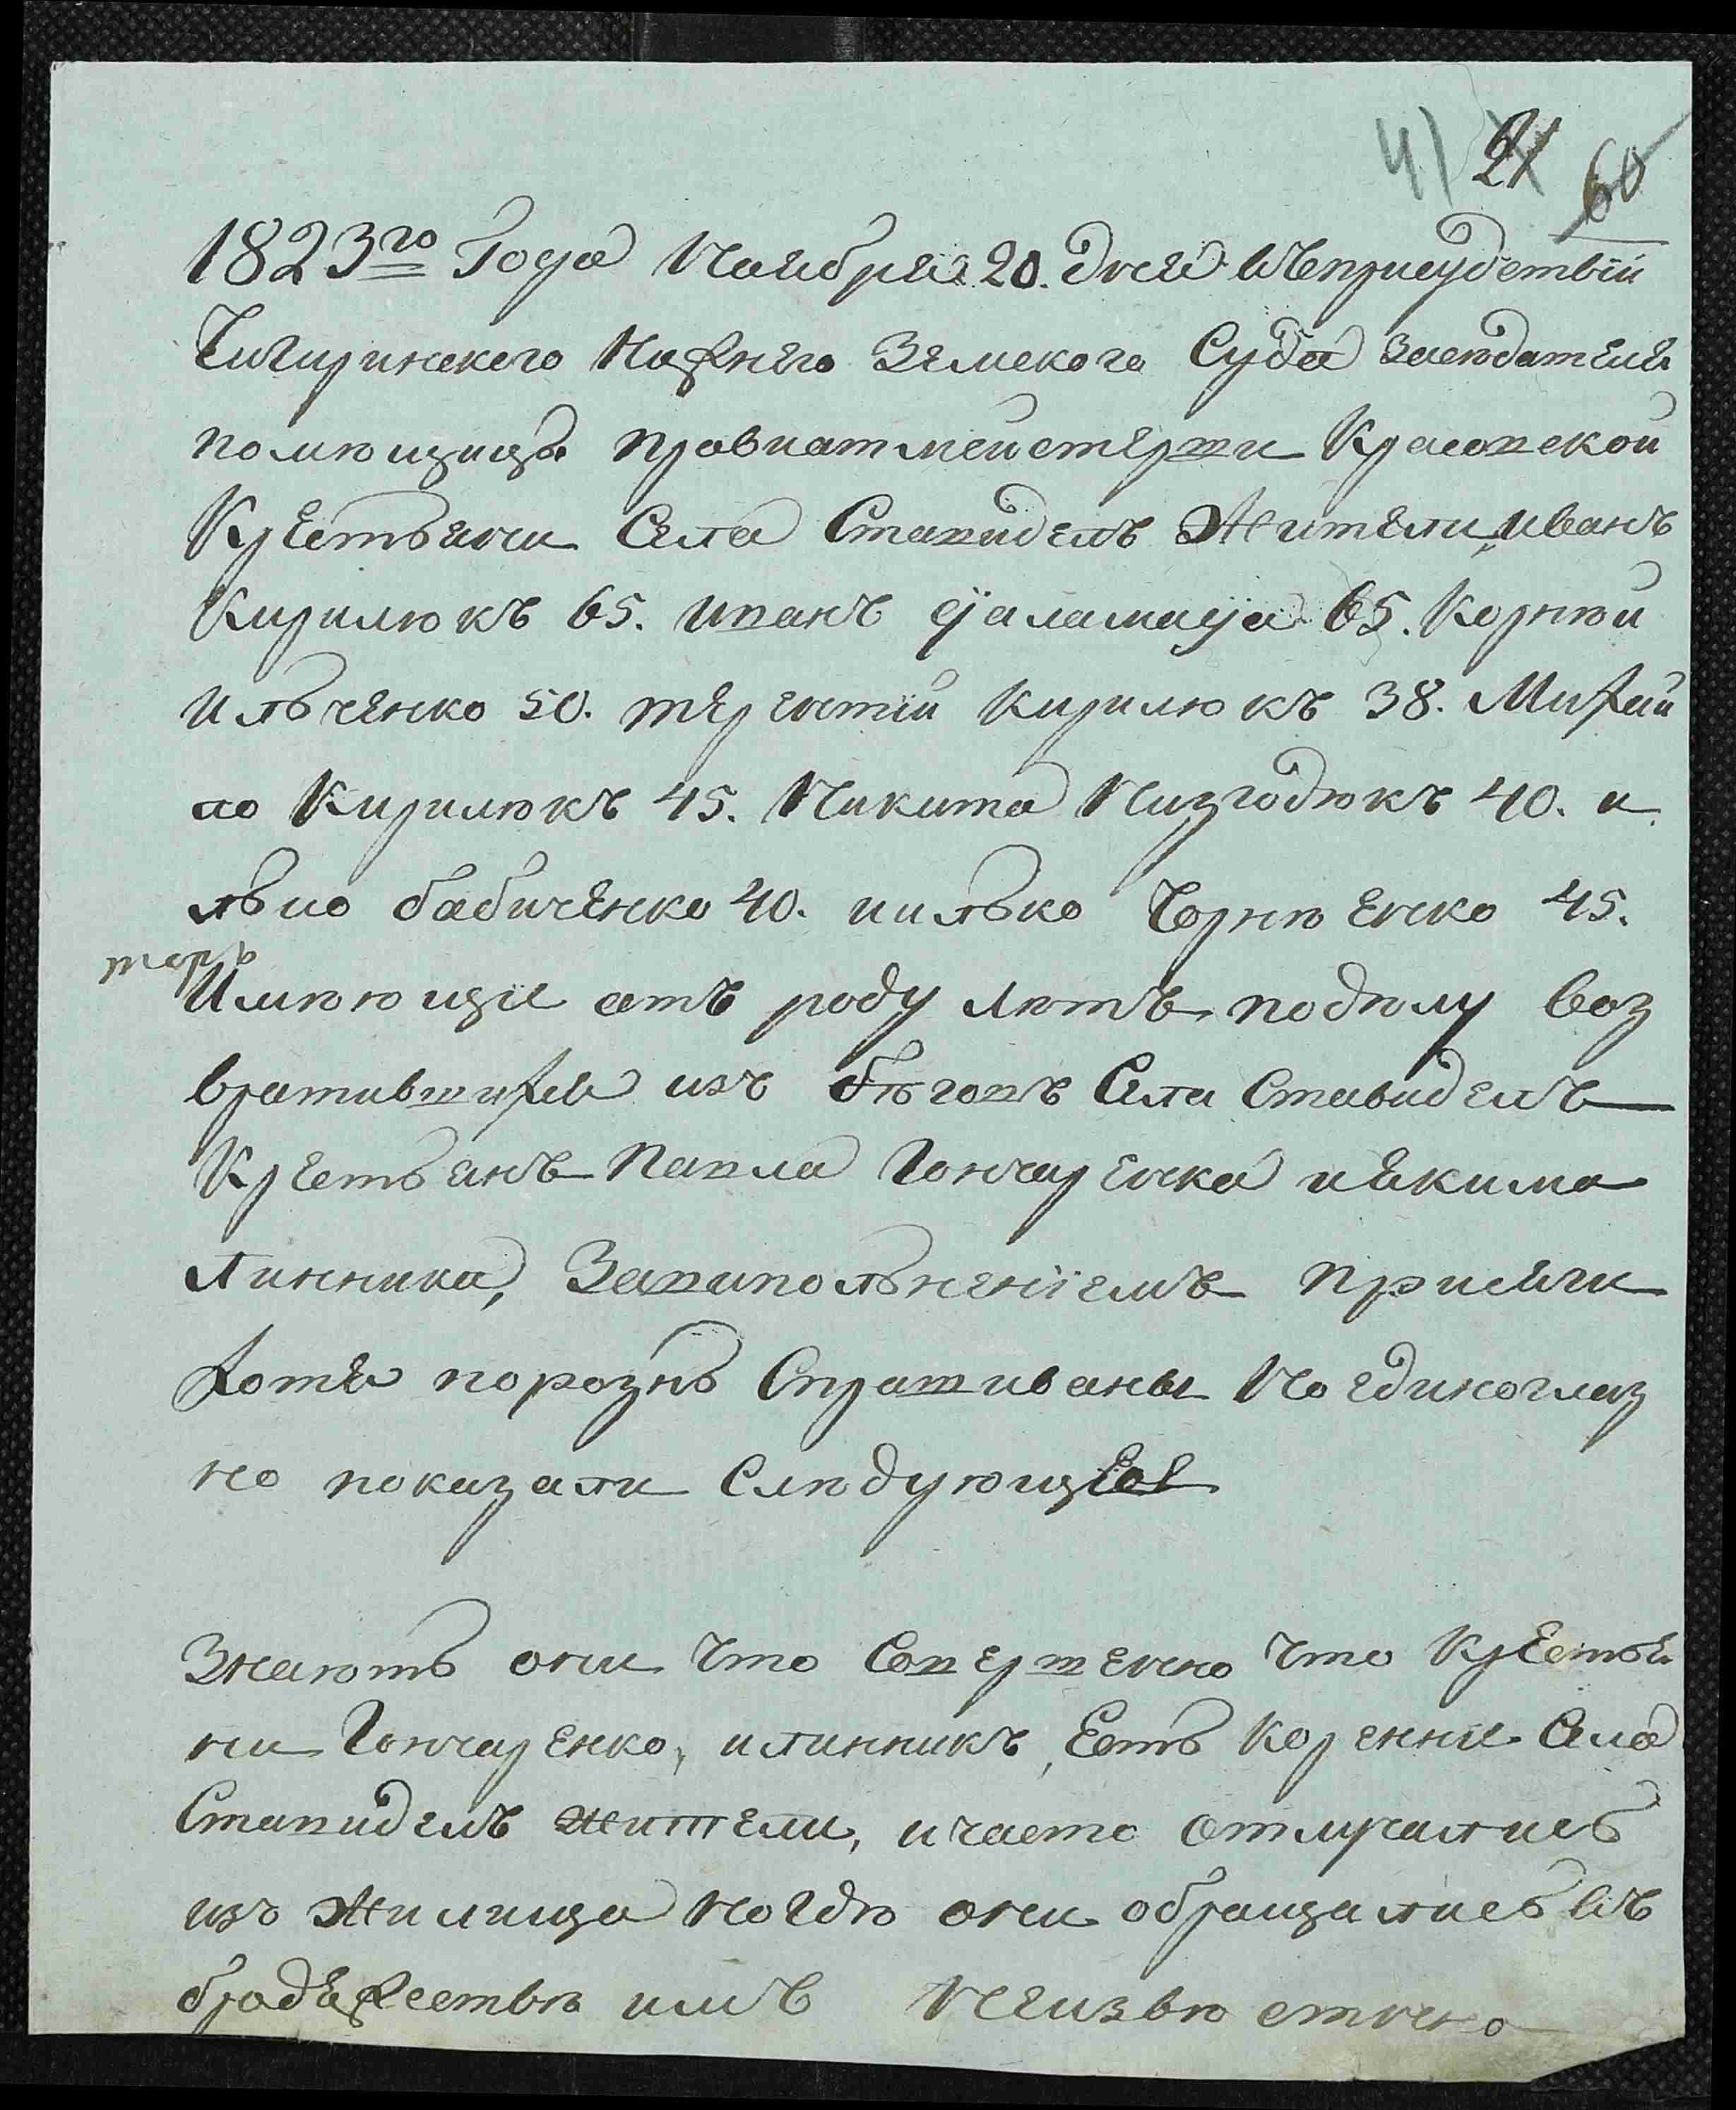 41 21 60
1823го Года Ноября 20. дня въприсудствіи
Чигиринского Нижнего Земского Суда Заседателя
помющицы провиантмейстерши Красовской
Крестьяни Села Ставиделъ Жители, иванъ
Кирилюкъ 65. иванъ 65. Корнюй
ильченко 50. терентій Кирилюкъ 38. Михай
ло Кирилюкъ 45. Никита Низгодюкъ 40. и
лько бабиченко 40. илько Чорнюенко 45.
Имюющіе отъ роду лютъ, подюлу воз
вратившихся изъ бюговъ Села Ставиделъ
Крестьянъ Павла Гончаренка иякима
линника, Завипольненіемъ присяги
хотя порознь Спрашиваны Но единоглаз
но показали Слюдующее
Знаютъ они что Совершенно что Крестья
ни Гончаренко, илинникъ, Есть коренніе Села
Ставиделъ жители, ичасто отлучались
изъ Жилища Ногдю они обращались въ
бродяжествю имъ Неизвюстнно